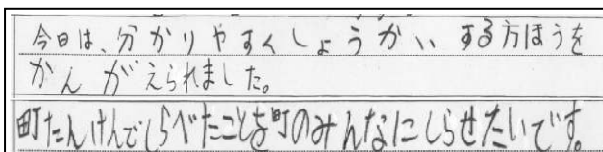 今日は、分かりやすくしょうかいする方ほうを
かんがえられました。
町たんけんでしらべたことを町のみんなにしらせたいです。